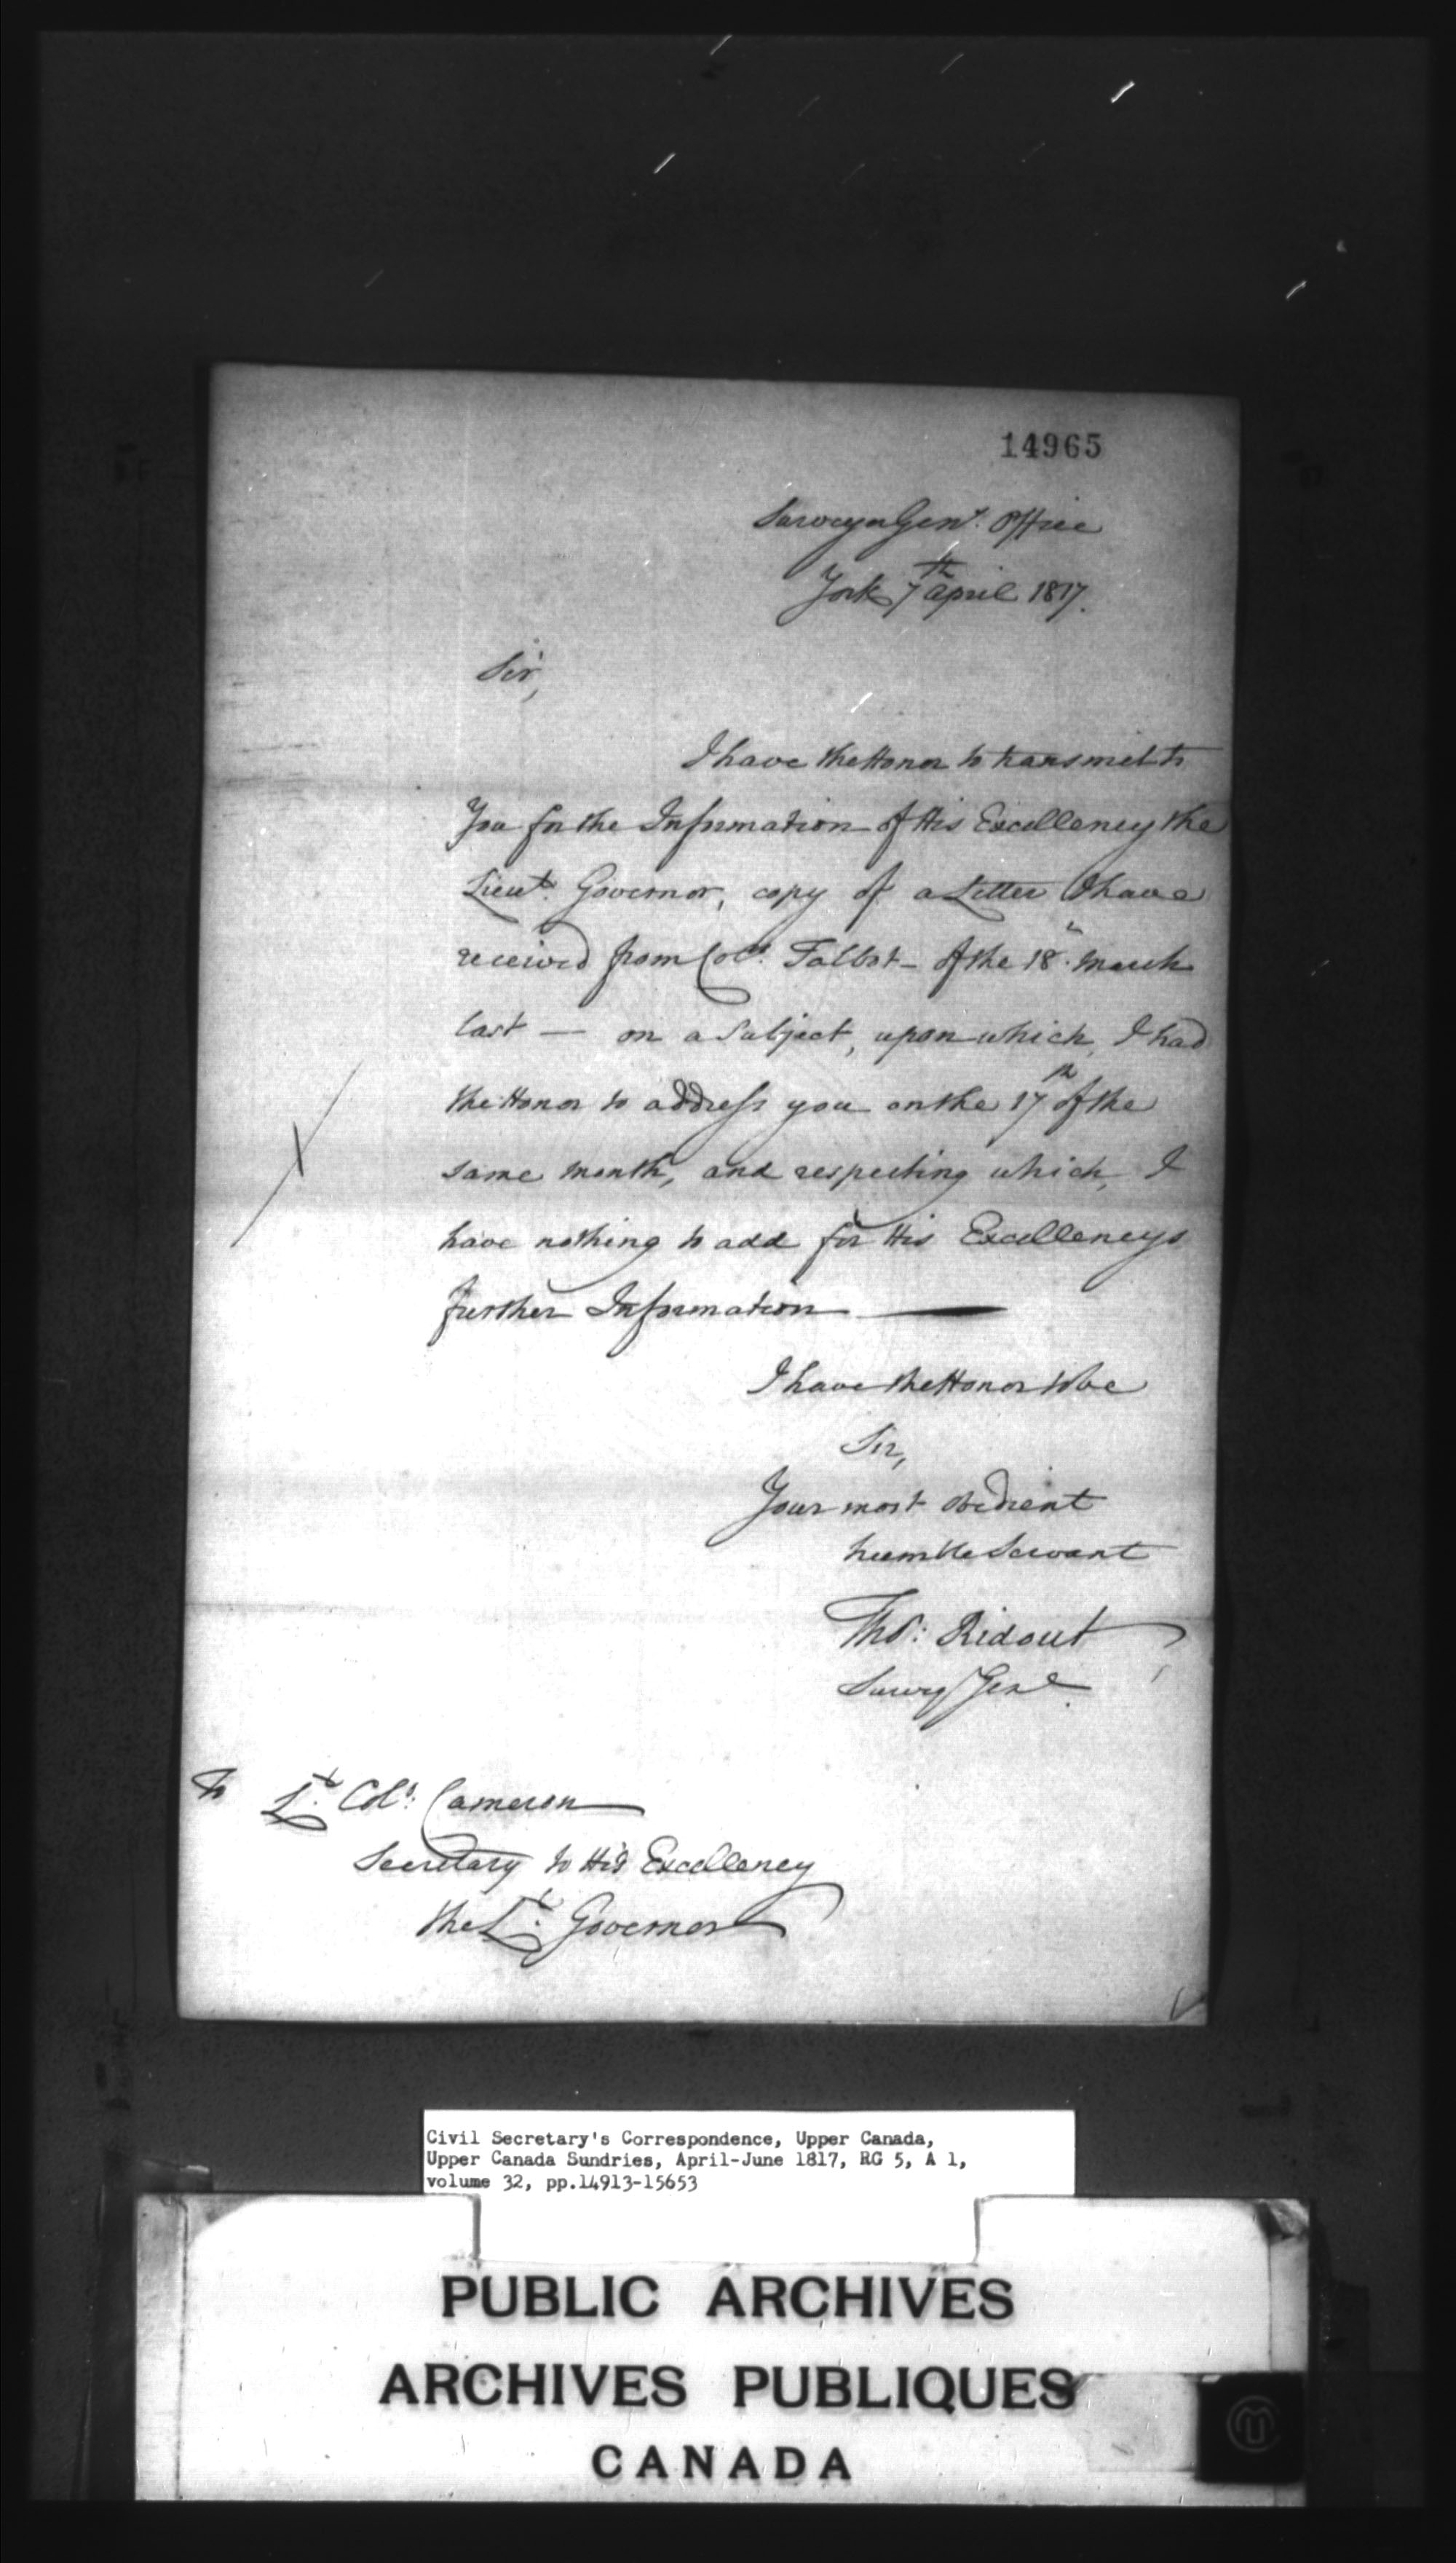 14965
Surveyor Genl. Office
York 7th April 1817.
Sir,
I have the Honor to transmit to
You for the Information of His Excellency the
Lieut. Governor, copy of a Letter I have
received from Coll. Talbot - of the 18th March
last — on a Subject, upon which, I had
the Honor to address you on the 17th of the
same month, and respecting which, I
have nothing to add for His Excellencys
further Information —
I have the Honor to be
Sir,
Your most obedient
humble Servant
Thos: Ridout
Survey Genl.
To Lt. Coll: Cameron
Secretary to His Excellency
the Lt. Governor
Civil Secretary's Correspondence, Upper Canada,
Upper Canada Sundries, April-June 1817, RG 5, A 1,
volume 32, pp.14913-15653
PUBLIC ARCHIVES
ARCHIVES PUBLIQUES
CANADA